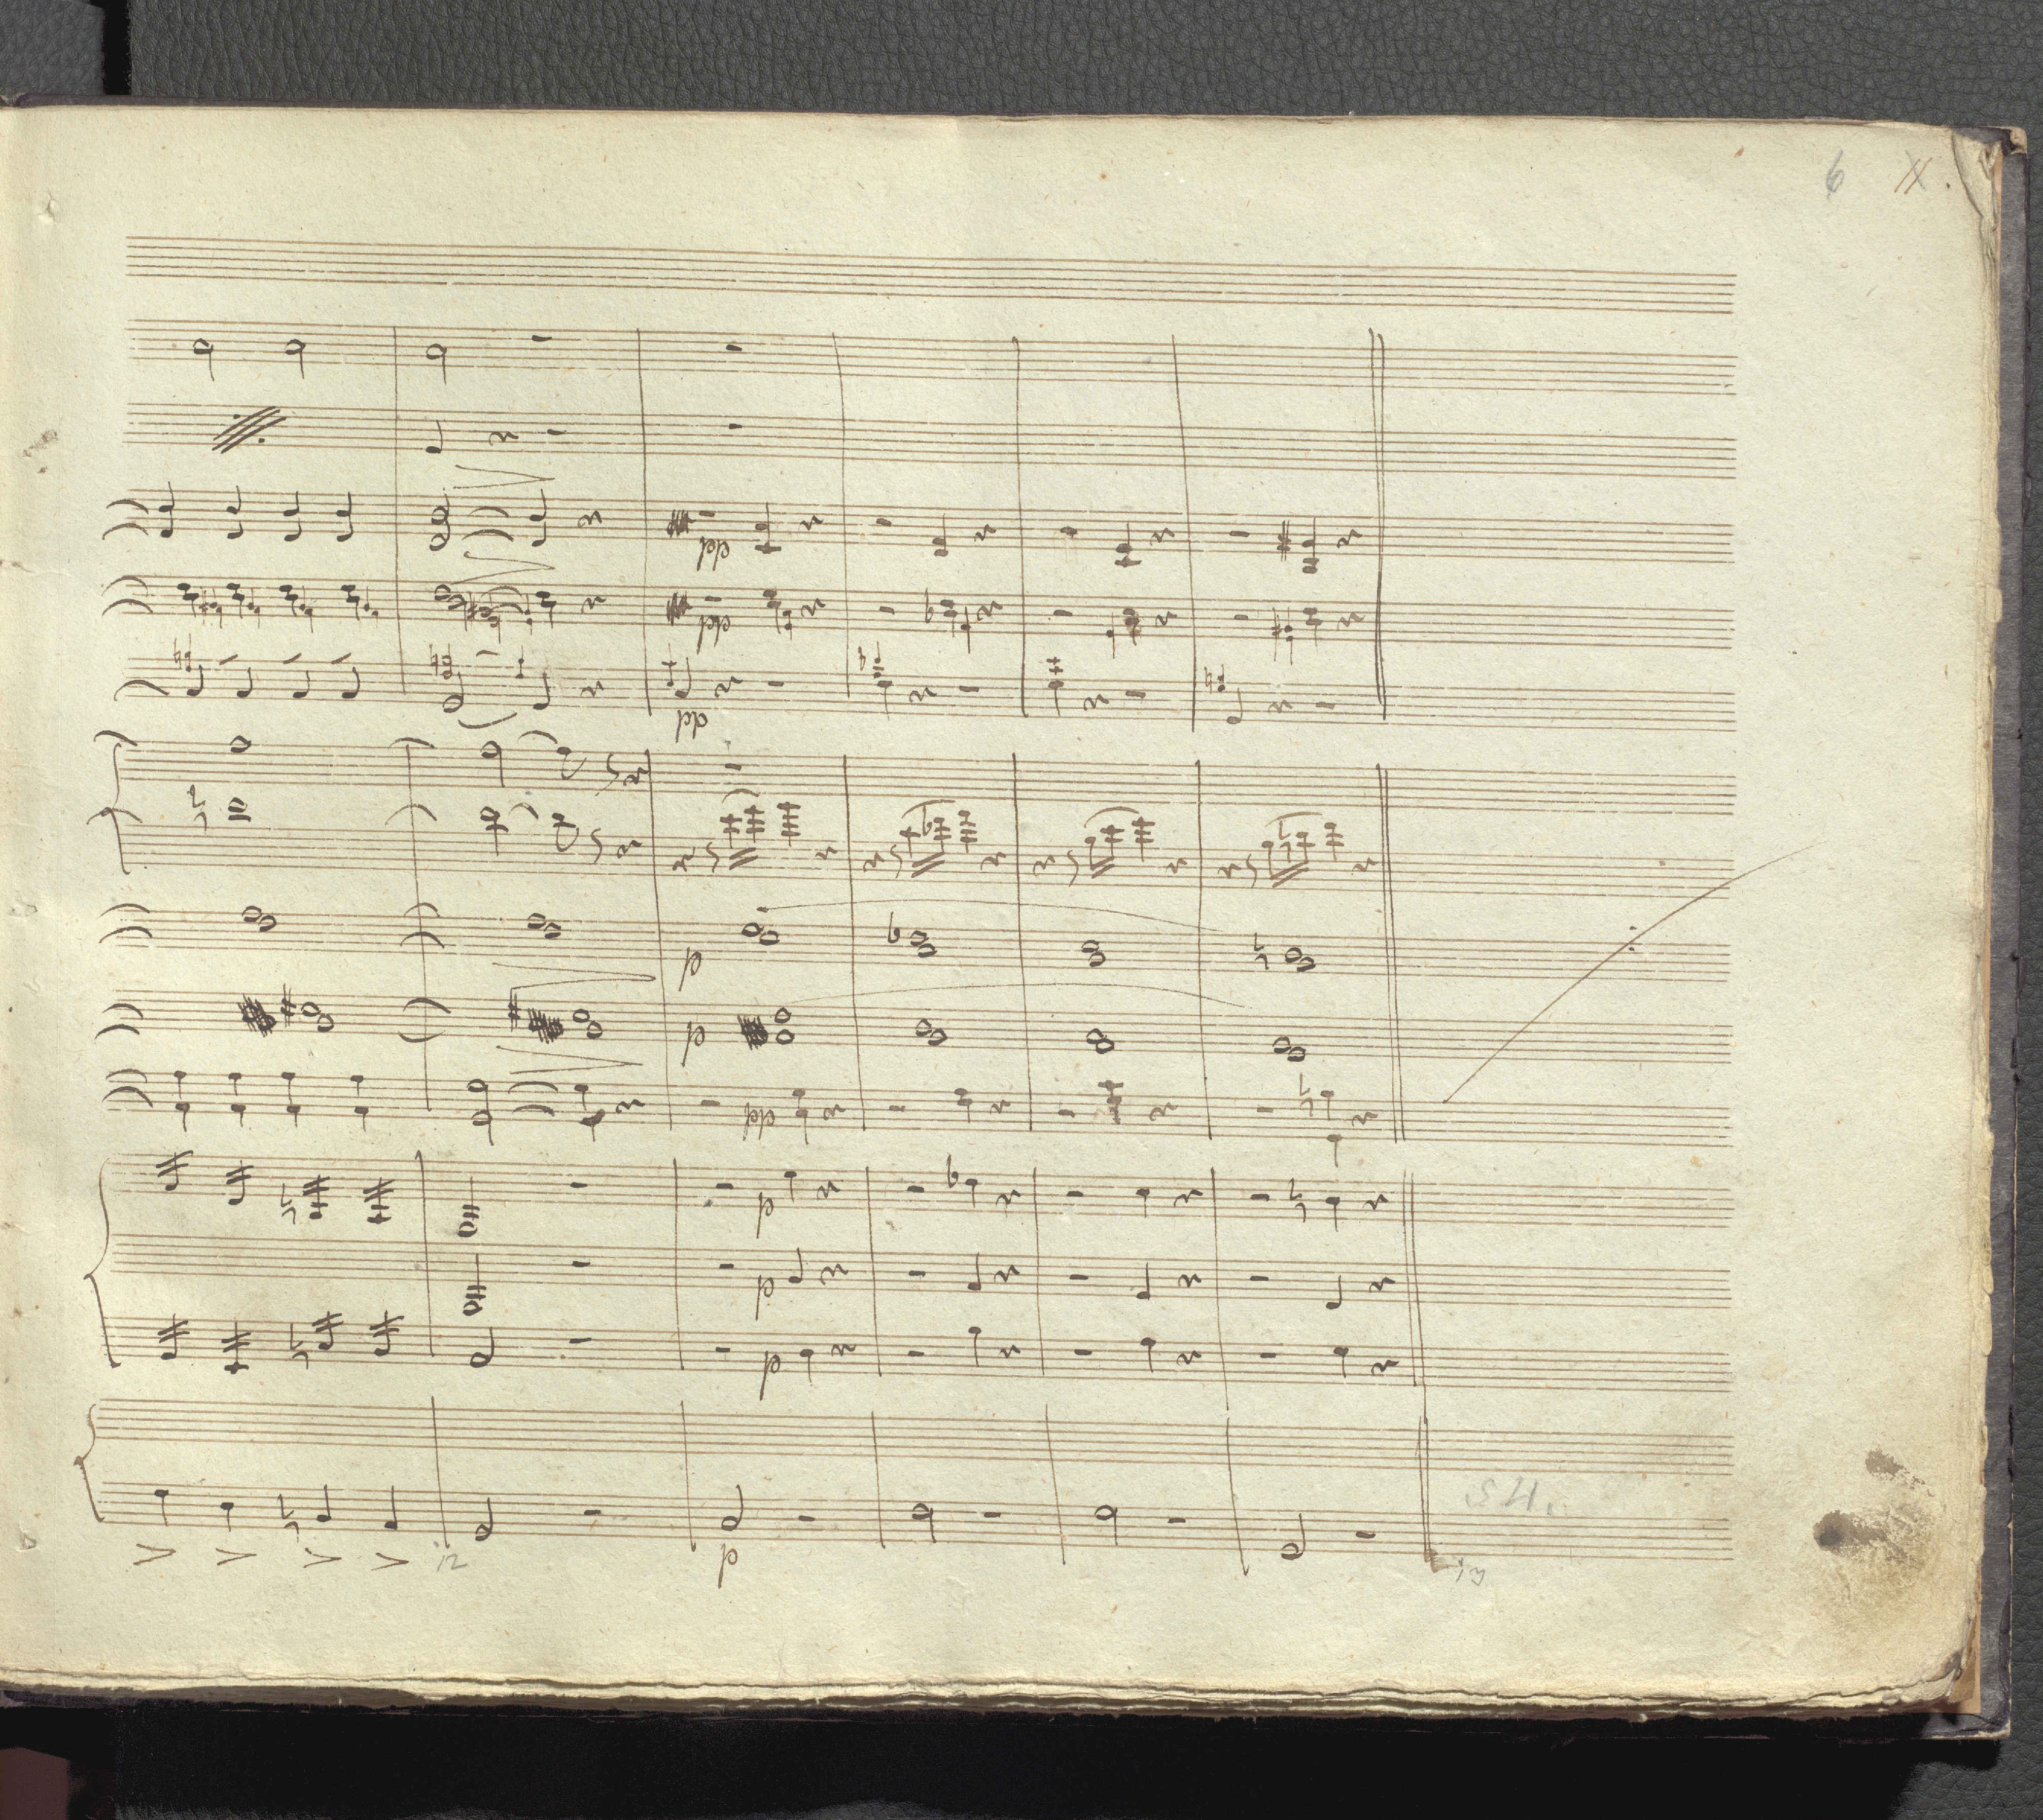 6
pp
pp
pp
p
p
pp
p
p
p
12
p
13